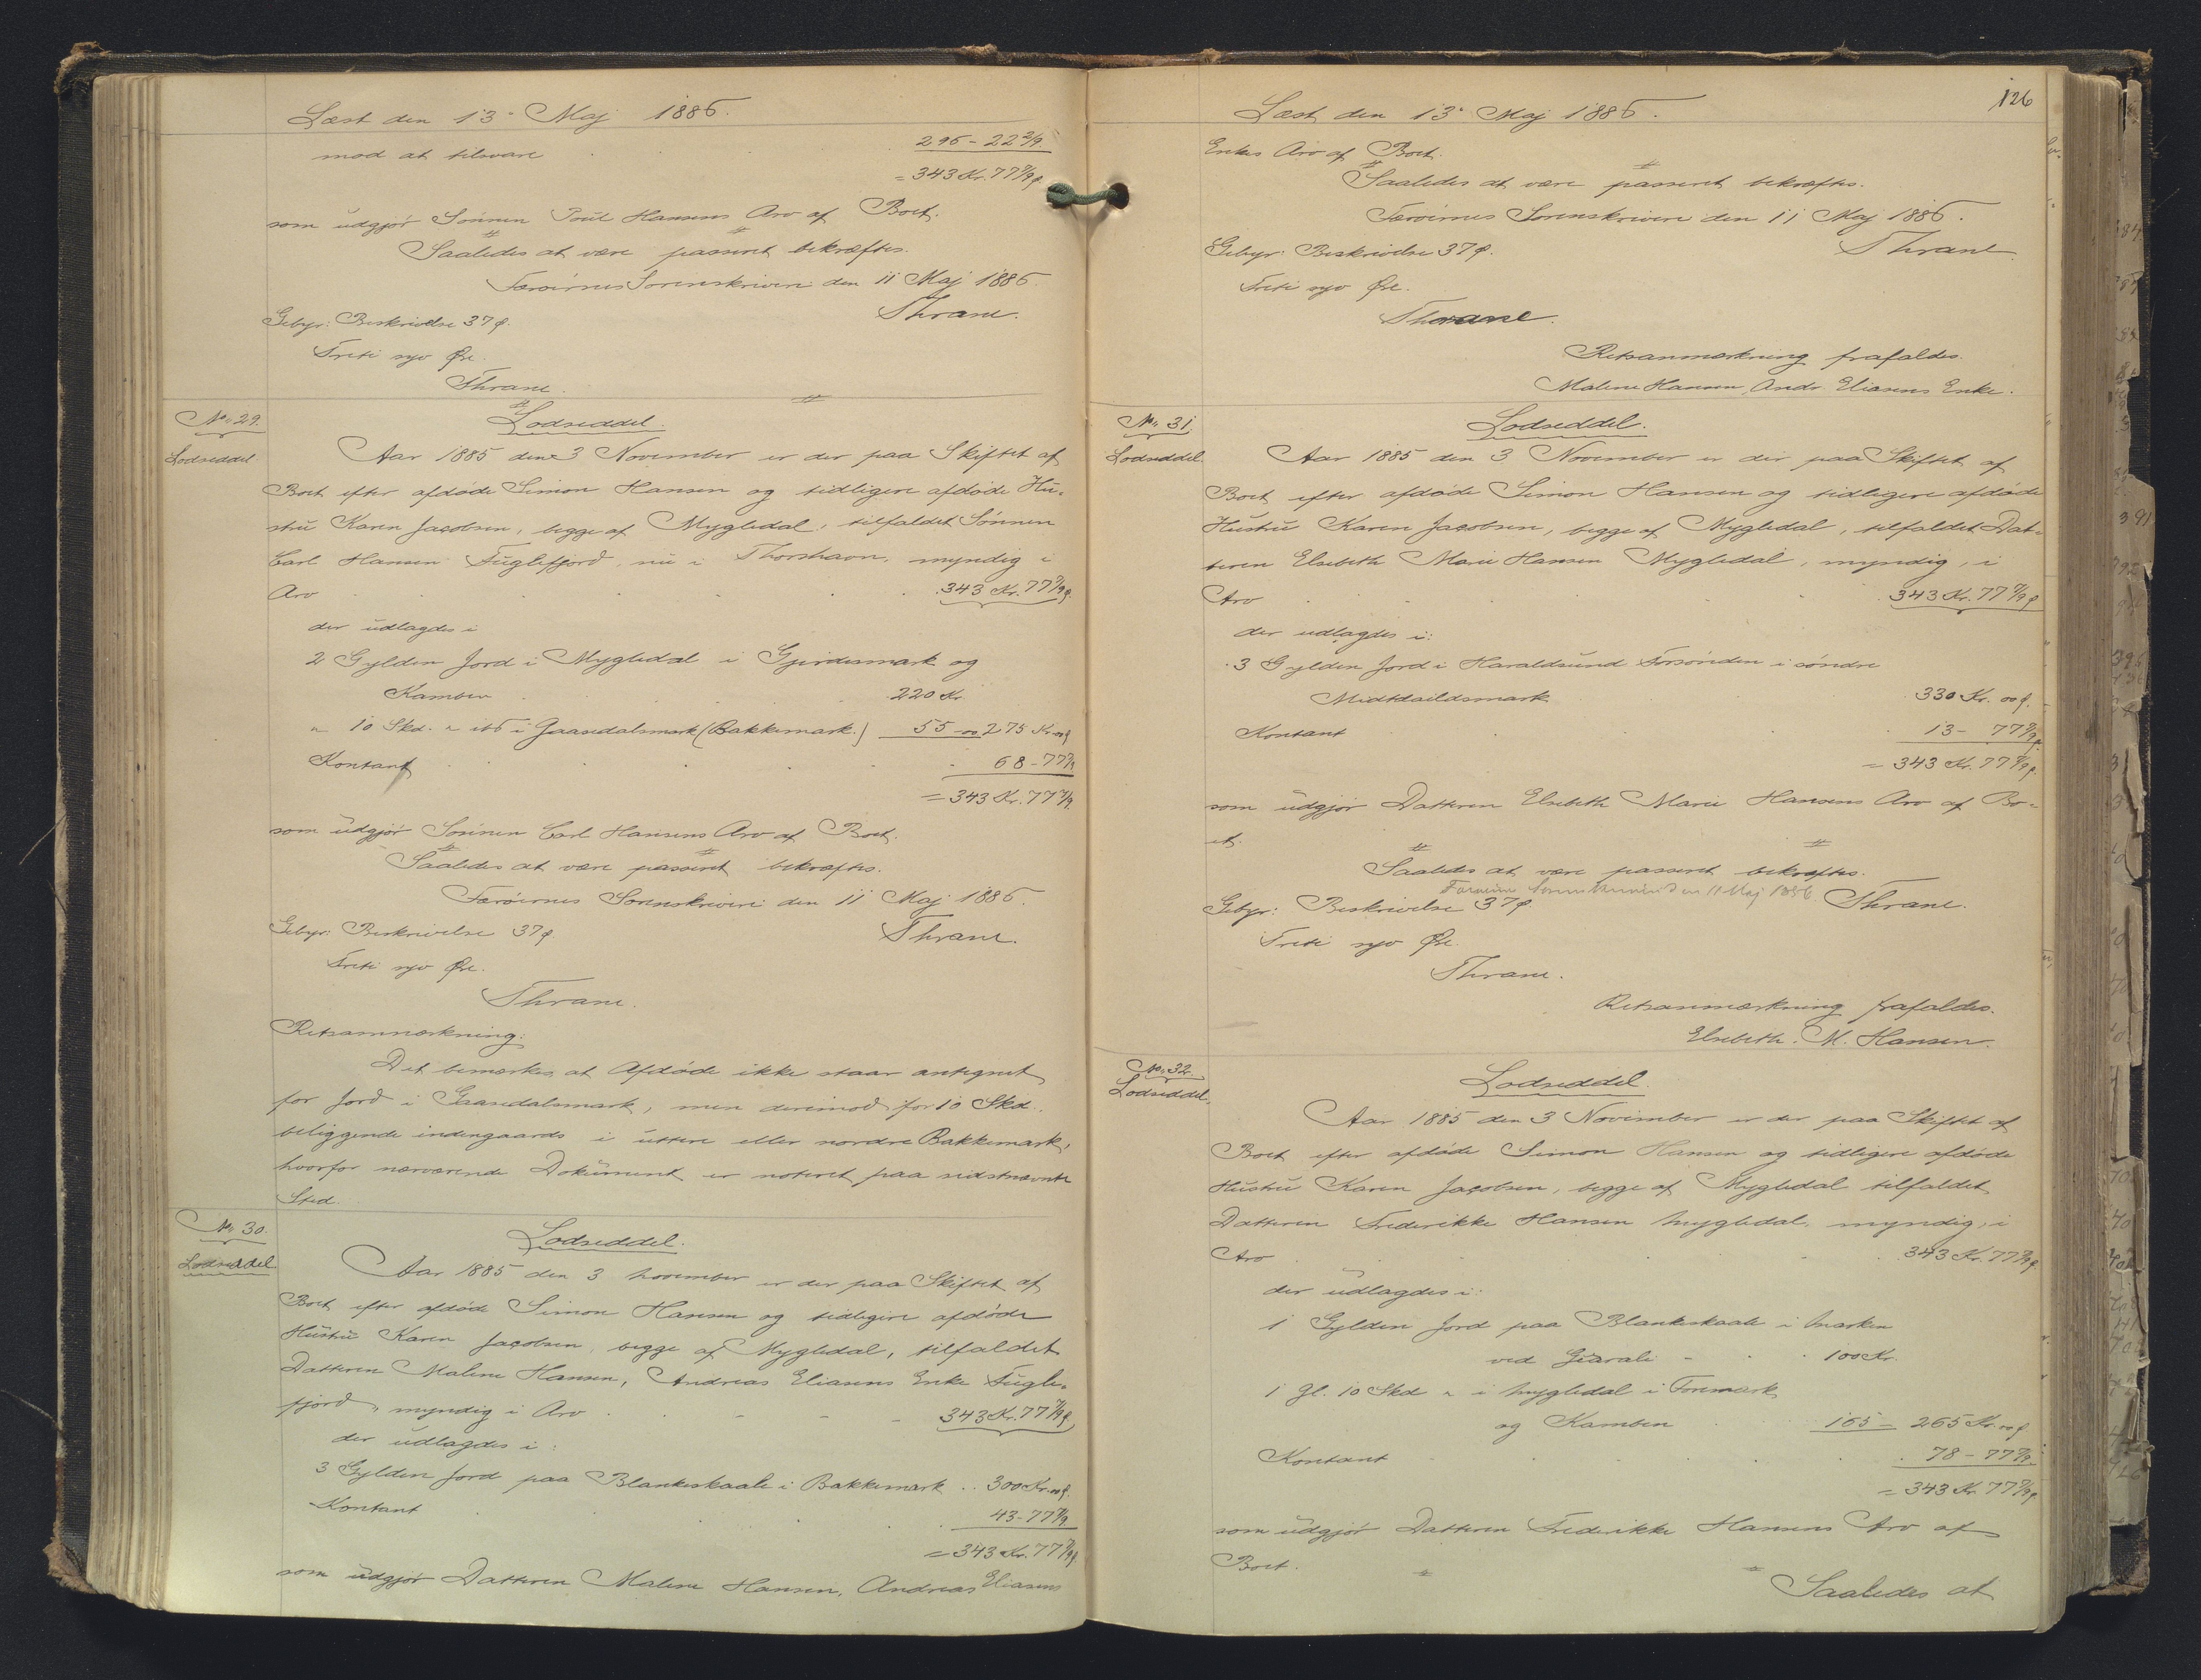 Læst den 13 Maj 1886.
mod at tilsvare 296 - 22 2/9.
= 343 Kr. 77 7/9 ø
som udgjør Sønnen Poul Hansens Arv af Boet.
Saaledes at være passeret bekræftes.
Færøernes Sorenskriveri den 11 Maj 1886.
Gebyr: Beskrivelse 37 ø. Thrane.
Treti syv Øre.
Thrane.
No. 29. Lodseddel.
Lodseddel. Aar 1885 den 3 November er der paa Skiftet af
Boet efter afdøde Simon Hansen og tidligere afdøde Hu-
stru Karen Jacobsen, begge af Mygledal, tilfaldet Sønnen
Carl Hansen Fuglefjord, nu i Thorshavn, myndig i
Arv 343 Kr. 77 7/9 ø.
der udlagdes i
2 Gylden Jord i Mygledal i Gjerdesmark og
Kamben 220 Kr.
" 10 Skd. " ibd i Gaasedalsmark (Bakkemark.) 55 - 00 275 Kr. 00 ø
Kontant 68 - 77 7/9
= 343 Kr. 77 7/9.
som udgjør Sønnen Carl Hansens Arv af Boet.
Saaledes at være passeret bekræftes.
Færøernes Sorenskriveri den 11 Maj 1886.
Gebyr: Beskrivelse 37 ø. Thrane.
Treti syv Øre.
Thrane.
Retsanmærkning:
Det bemærkes, at Afdøde ikke staar antegnet
for Jord i Gaasedalsmark, men derimod for 10 Skd.
beliggende indengaards i uttere eller nordre Bakkemark,
hvorfor nærværende Dokument er noteret paa sidstnævnte
Sted.
No. 30. Lodseddel.
Lodseddel. Aar 1885 den 3 November er der paa Skiftet af
Boet efter afdøde Simon Hansen og tidligere afdøde
Hustru Karen Jacobsen, begge af Mygledal, tilfaldet
Datteren Malene Hansen, Andreas Eliasens Enke Fugle-
fjord, myndig i Arv 343 Kr. 77 7/9 ø
der udlagdes i:
3 Gylden Jord paa Blankeskaale i Bakkemark 300 Kr. 00 ø.
Kontant 43 - 77 7/9
= 343 Kr. 77 7/9 ø.
som udgjør Datteren Malene Hansen, Andreas Eliasens
126
Læst den 13 Maj 1886.
Enkes Arv af Boet.
Saaledes at være passeret bekræftes.
Færøernes Sorenskriveri den 11 Maj 1886.
Gebyr: Beskrivelse 37 ø. Thrane
Treti syv Øre.
Thrane.
Retsanmærkning frafaldes.
Malene Hansen, Andr. Eliasens Enke.
No. 31. Lodseddel.
Lodseddel. Aar 1885 den 3 November er der paa Skiftet af
Boet efter afdøde Simon Hansen og tidligere afdøde
Hustru Karen Jacobsen, begge af Mygledal, tilfaldet Dat-
teren Elsebeth Marie Hansen Mygledal, myndig, i
Arv 343 Kr. 77 7/9 ø
der udlagdes i:
3 Gylden Jord i Haraldsund Forsønden i søndre
Midtdaildsmark 330 Kr. 00 ø.
Kontant 13 - 77 7/9 ø.
= 343 Kr. 77 7/9 ø.
som udgjør Datteren Elsebeth Marie Hansens Arv af Bo-
et.
Saaledes at være passeret bekræftes.
Færøernes Sorenskriveri den 11 Maj 1886.
Gebyr: Beskrivelse 37 ø. Thrane.
Treti syv Øre.
Thrane.
Retsanmærkning frafaldes.
Elsebeth. M. Hansen.
No. 32. Lodseddel.
Lodseddel. Aar 1885 den 3 November er der paa Skiftet af
Boet efter afdøde Simon Hansen og tidligere afdøde
Hustru Karen Jacobsen, begge af Mygledal tilfaldet
Datteren Frederikke Hansen Mygledal, myndig, i
Arv 343 Kr. 77 7/9 ø.
der udlagdes i:
1 Gylden Jord paa Blankeskaale i Marken
ved Giærale 100 Kr.
1 Gl. 10 Skd " i Mygledal i Foremark
og Kamben 165 - 265 Kr. 00 ø
Kontant 78 - 77 7/9.
= 343 Kr. 77 7/9 ø
som udgjør Datteren Frederikke Hansens Arv af
Boet.
Saaledes at